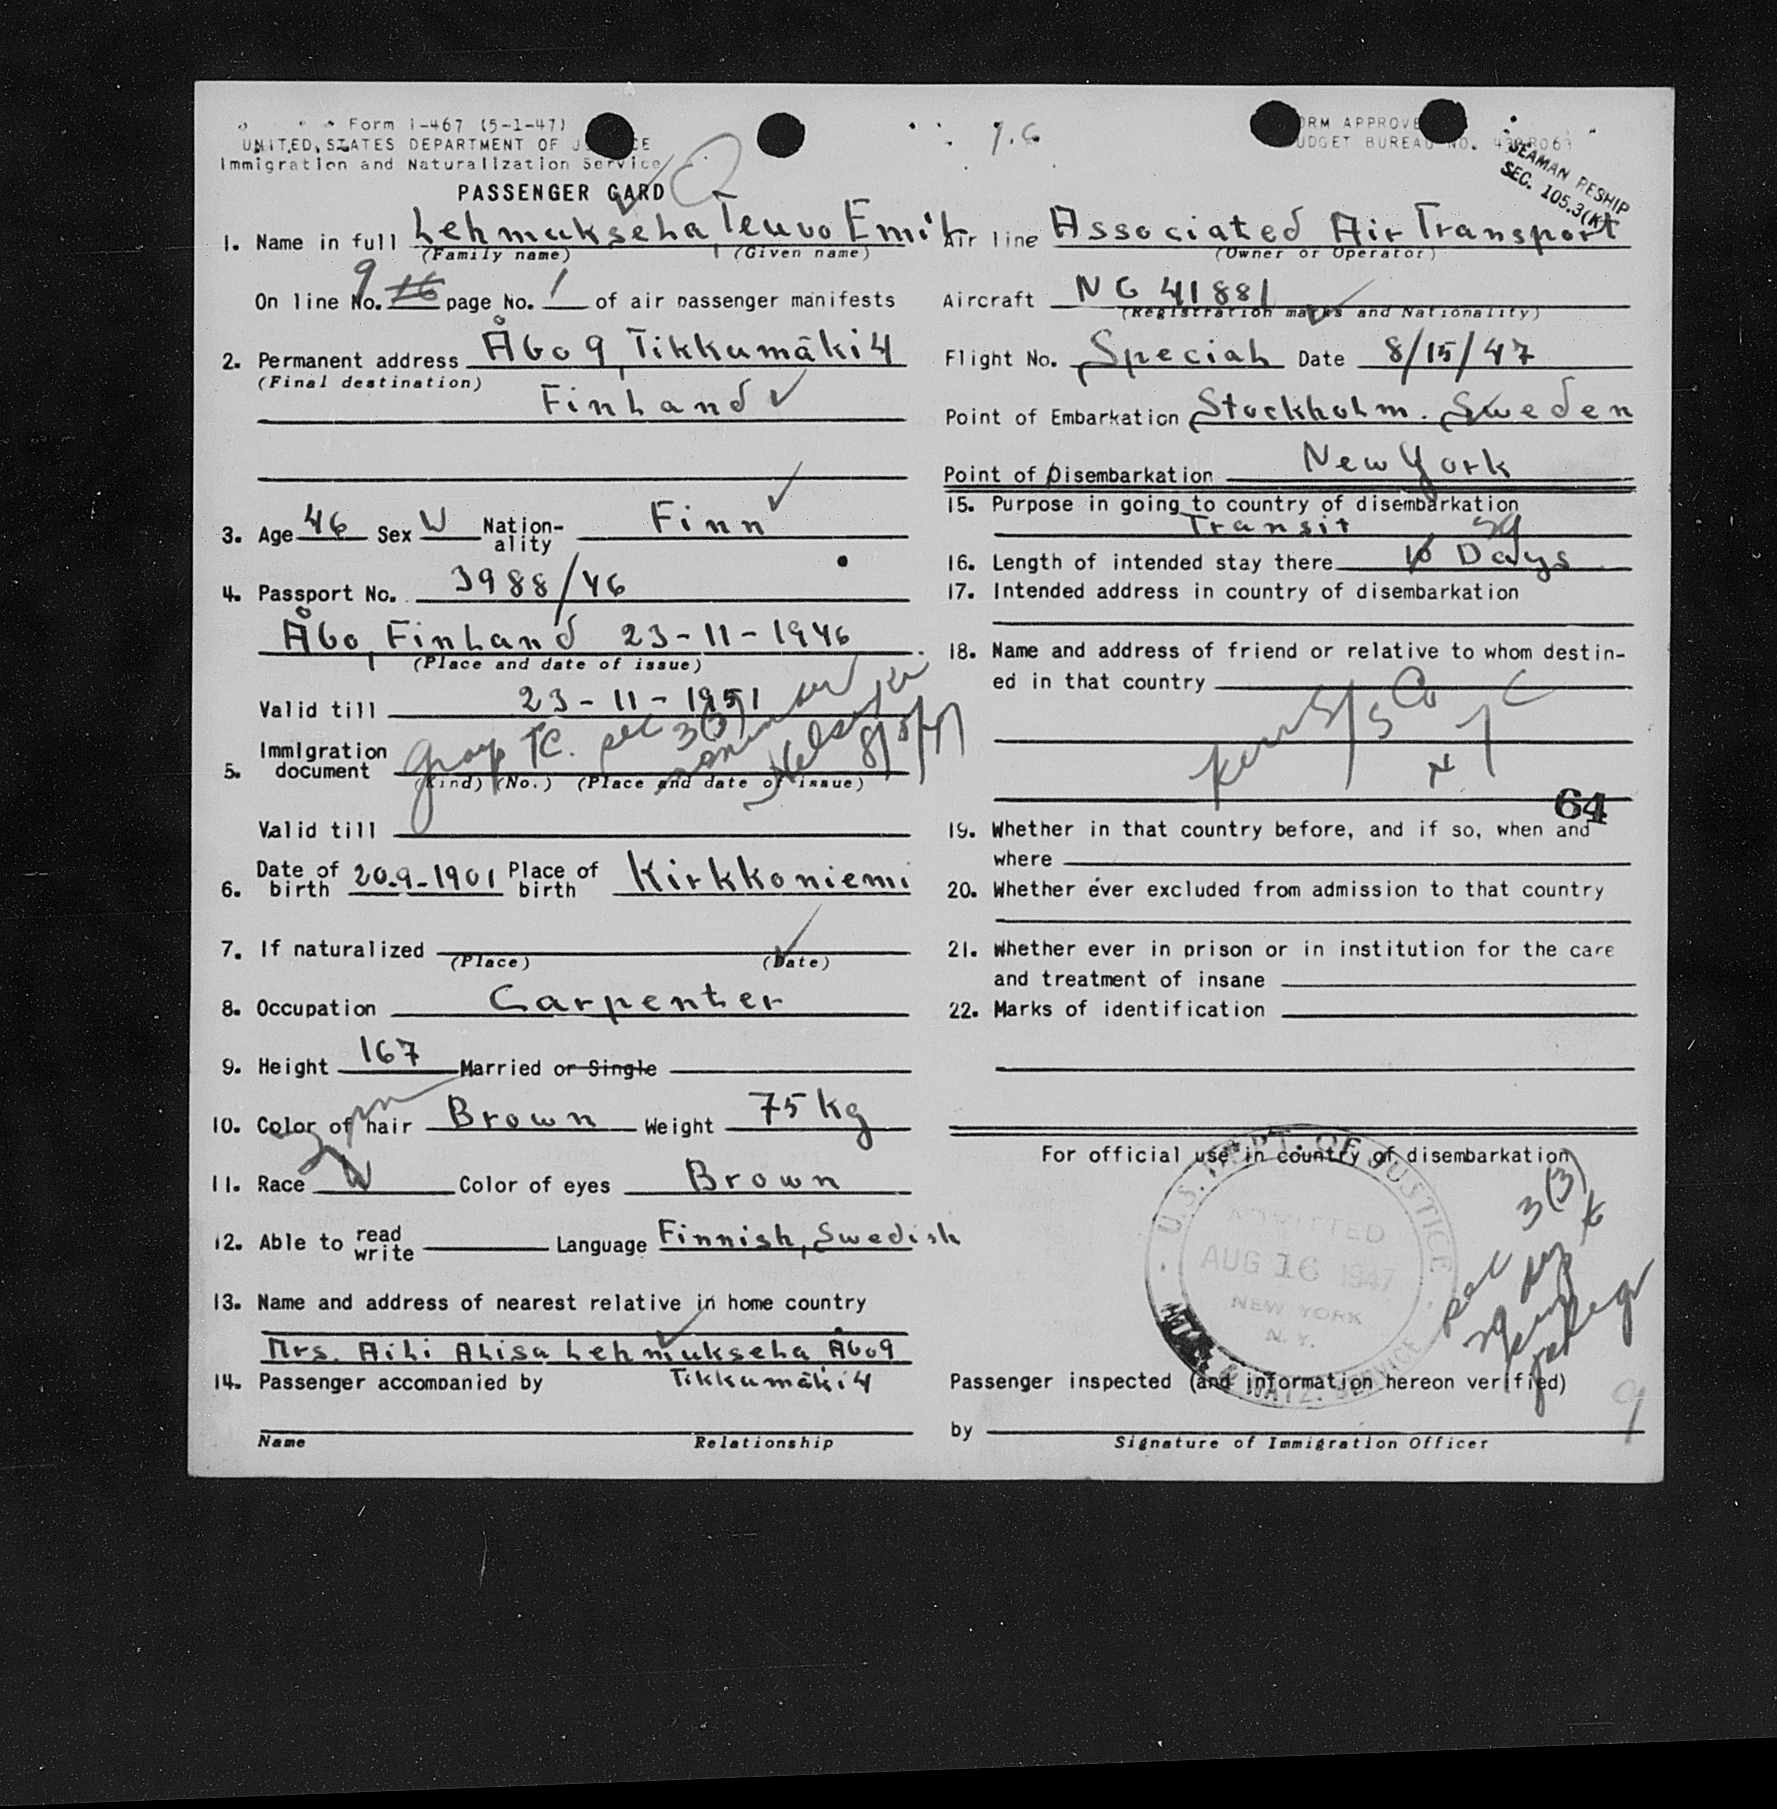 Form I-467 (5-1-47)
UNITED STATES DEPARTMENT OF
Immigration and Naturalization Service
PASSENGER CARD
1. Name in full Lehmukseha Teuvo Emil
(Family name) (Given name)
On line No. 9 16 page No. 1 of air passenger manifests
2. Permanent address Åbo 9, Tikkumäki 4
(Final destination)
Finland
3. Age 46 Sex W Nation-ality Finn
4. Passport No. 3988/46
Åbo, Finland 23-11-1946
(Place and date of issue)
Valid till 23-11-1951
5. Immigration document Group TC. sec 3(3)
(Kind) (No.) (Place and date of issue)
Valid till
6. Date of birth 20.9-1901 Place of birth Kirkkoniemi
7. If naturalized
(Place) (Date)
8. Occupation Carpenter
9. Height 167 Married or Single
10. Color of hair Brown Weight 75 kg
11. Race W Color of eyes Brown
12. Able to read write Language Finnish, Swedish
13. Name and address of nearest relative in home country
Mrs. Aili Alisa Lehmukseha Åbo 9
Tikkumäki 4
14. Passenger accompanied by
Name Relationship
7.6
FORM APPROVED
BUDGET BUREAU NO.
SEAMAN RESHIP
SEC. 105.3(K)
Air line Associated Air Transport
(Owner or Operator)
Aircraft NC 41881
(Registration marks and Nationality)
Flight No. Special Date 8/15/47
Point of Embarkation Stockholm. Sweden
Point of Disembarkation New York
15. Purpose in going to country of disembarkation
Transit
16. Length of intended stay there 29 10 Days
17. Intended address in country of disembarkation
18. Name and address of friend or relative to whom destin-
ed in that country
Kerr S/S Co
N Y C
64
19. Whether in that country before, and if so, when and
where
20. Whether ever excluded from admission to that country
21. Whether ever in prison or in institution for the care
and treatment of insane
22. Marks of identification
For official use in country of disembarkation
U.S. DEPT. OF JUSTICE
ADMITTED
AUG 16 1947
NEW YORK
N.Y.
sec 3(3)
29 days
Passenger inspected (and information hereon verified)
9
by
Signature of Immigration Officer